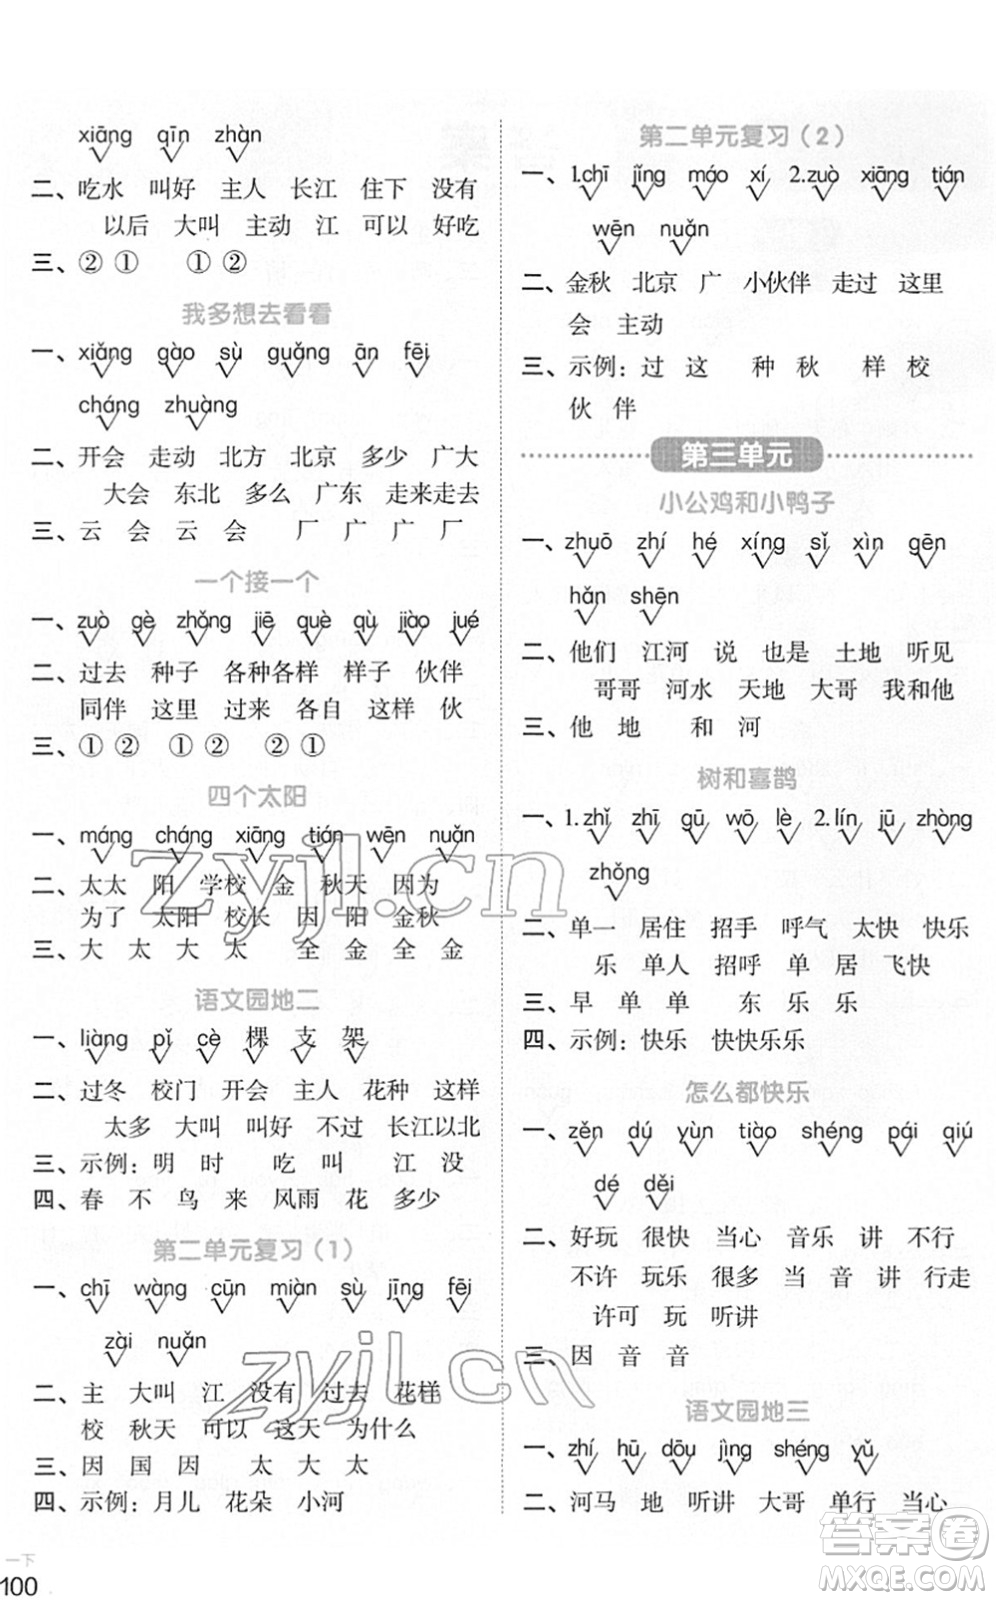 xiāng qīn zhàn
二、吃水 叫好 主人 长江 住下 没有
以后 大叫 主动 江 可以 好吃
三、② ① ① ②
我多想去看看
一、xiǎng gào sù guǎng ān fēi
cháng zhuàng
二、开会 走动 北方 北京 多少 广大
大会 东北 多么 广东 走来走去
三、云 会 云 会 厂 广 广 厂
一个接一个
一、zuò gè zhǒng jiē què qù jiào jué
二、过去 种子 各种各样 样子 伙伴
同伴 这里 过来 各自 这样 伙
三、① ② ① ② ② ①
四个太阳
一、máng cháng xiāng tián wēn nuǎn
二、太太 阳 学校 金 秋天 因为
为了 太阳 校长 因 阳 金秋
三、大 太 大 太 全 金 全 金
语文园地二
一、liàng pǐ cè 棵 支 架
二、过冬 校门 开会 主人 花种 这样
太多 大叫 叫好 不过 长江以北
三、示例：明 时 吃 叫 江 没
四、春 不 鸟 来 风雨 花 多少
第二单元复习（1）
一、chī wàng cūn miàn sù jīng fēi
zài nuǎn
二、主 大叫 江 没有 过去 花样
校 秋天 可以 这天 为什么
三、因 国 因 太 大 太
四、示例：月儿 花朵 小河
一下
100
第二单元复习（2）
一、1.chī jǐng máo xí 2.zuò xiāng tián
wēn nuǎn
二、金秋 北京 广 小伙伴 走过 这里
会 主动
三、示例：过 这 种 秋 样 校
伙 伴
第三单元
小公鸡和小鸭子
一、zhuō zhí hé xíng sǐ xìn gēn
hǎn shēn
二、他们 江河 说 也是 土地 听见
哥哥 河水 天地 大哥 我和他
三、他 地 和 河
树和喜鹊
一、1.zhǐ zhī gū wō lè 2.lín jū zhòng
zhǒng
二、单一 居住 招手 呼气 太快 快乐
乐 单人 招呼 单 居 飞快
三、早 单 单 东 乐 乐
四、示例：快乐 快快乐乐
怎么都快乐
一、zěn dú yùn tiào shéng pái qiú
dé děi
二、好玩 很快 当心 音乐 讲 不行
不许 玩乐 很多 当 音 讲 行走
许可 玩 听讲
三、因 音 音
语文园地三
一、zhí hū dōu jìng shéng yǔ
二、河马 地 听讲 大哥 单行 当心
zyjl.cn
zyjl.cn
答案圈
MXQE.COM